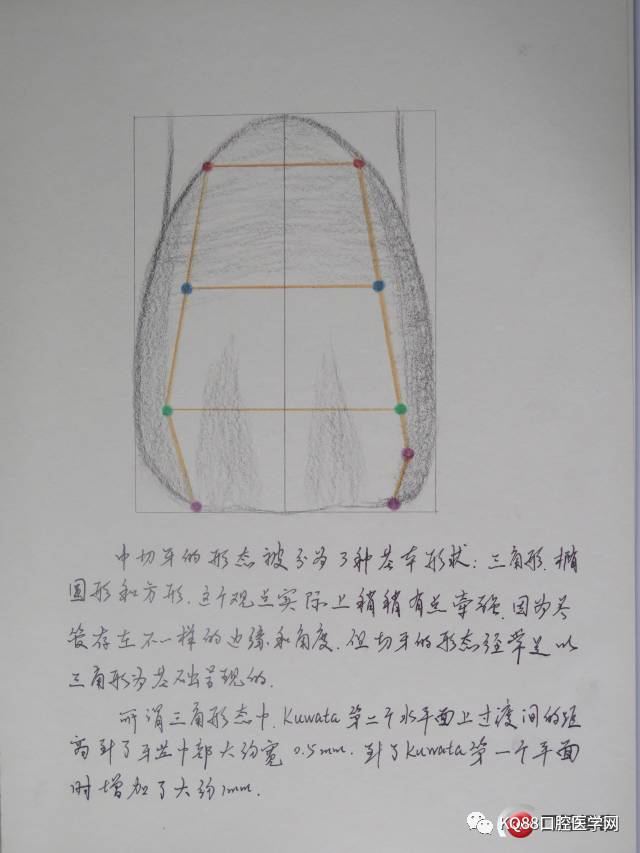 中切牙的形态被分为3种基本形状：三角形、椭
圆形和方形，这个观点实际上稍稍有点牵强，因为尽
管存在不一样的边缘和角度，但切牙的形态经常是以
三角形为基础呈现的.
所谓三角形态中，Kuwata第二个水平面上过渡间的距
离到了牙齿中部大约宽0.5mm. 到了Kuwata第一个平面
时增加了大约1mm.
KQ88口腔医学网